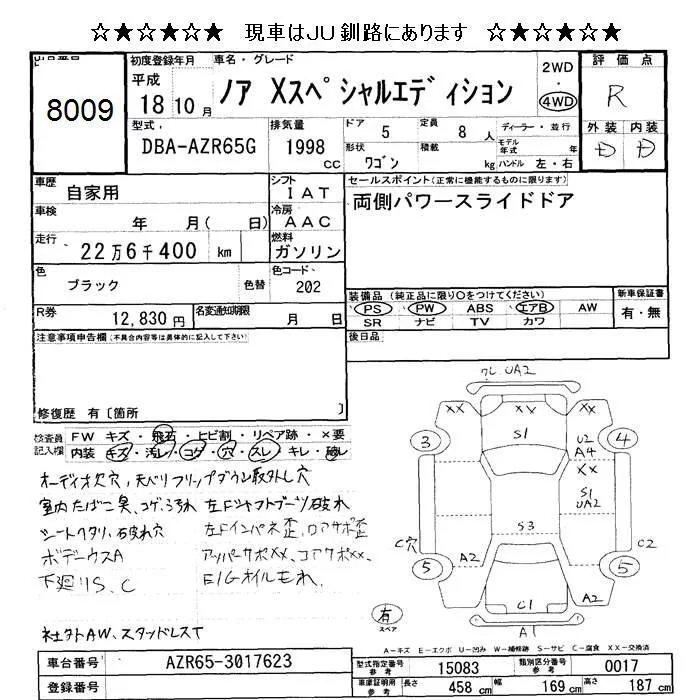 ☆★☆★☆★ 現車はJU釧路にあります ☆★☆★☆★
8009
初度登録年月 車名・グレード 2WD 評価点
平成 18 10月 ノア Xスペシャルエディション 4WD R
型式 排気量 ドア 5 定員 8 人 ディーラー・並行 外装 内装
DBA-AZR65G 1998 CC 形状 ワゴン 積載 kg モデル年式 年 ハンドル 左・右 D D
車歴 自家用 シフト IAT セールスポイント(正常に機能するものに限ります)
車検 年 月( 日) 冷房 AAC 両側パワースライドドア
走行 22万6千400 km 燃料 ガソリン
色 ブラック 色替 色コード 202
装備品(純正品に限り○をつけてください) 新車保証書
R券 12,830円 名変通知期限 月 日 PS PW ABS エアB AW 有・無
SR ナビ TV カワ
注意事項申告欄(不具合内容等は具体的に記入して下さい) 後日品
修復歴 有〔箇所 〕
検査員記入欄 FW キズ・飛石・ヒビ割・リペア跡・×要
内装 キズ・汚レ・コゲ・穴・スレ・キレ・破レ
オーディオ欠穴,天ベリフリップダウン取外し穴
室内たばこ臭、コゲ、汚れ 左Fシャフトブーツ破れ
シートヘタリ、破れ穴 左Fインパネ歪、ロアサポ歪
ボデーウスA アッパーサポXX、コアサポXX、
下廻りS、C E/Gオイルもれ、
社外AW、スタッドレスT
クレ UA2
XX XV XX
3 S1 U2 4
A4
XX
S1
UA2
S3
C穴 A2 C2
5 5
C1 A2
有 スペア A1
A-キズ E-エクボ U-凹み W-補修跡 S-サビ C-腐食 XX-交換済
車台番号 AZR65-3017623 型式指定番号 参考 15083 類別区分番号 参考 0017
登録番号 車庫証明用 参考 長さ 458 cm 幅 169 cm 高さ 187 cm